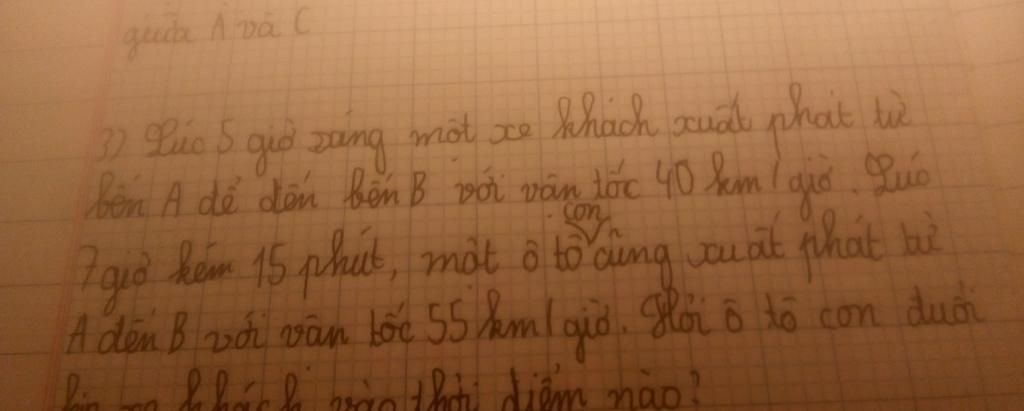 giữa A và C
3) Lúc 5 giờ sáng một xe khách xuất phát từ
bến A để đến bến B với vân tốc 40 km/giờ. Lúc
con
7 giờ kém 15 phút, một ô tô cũng xuất phát từ
A đến B với vân tốc 55 km/giờ. Hỏi ô tô con đuổi
kịp xe khách vào thời điểm nào?